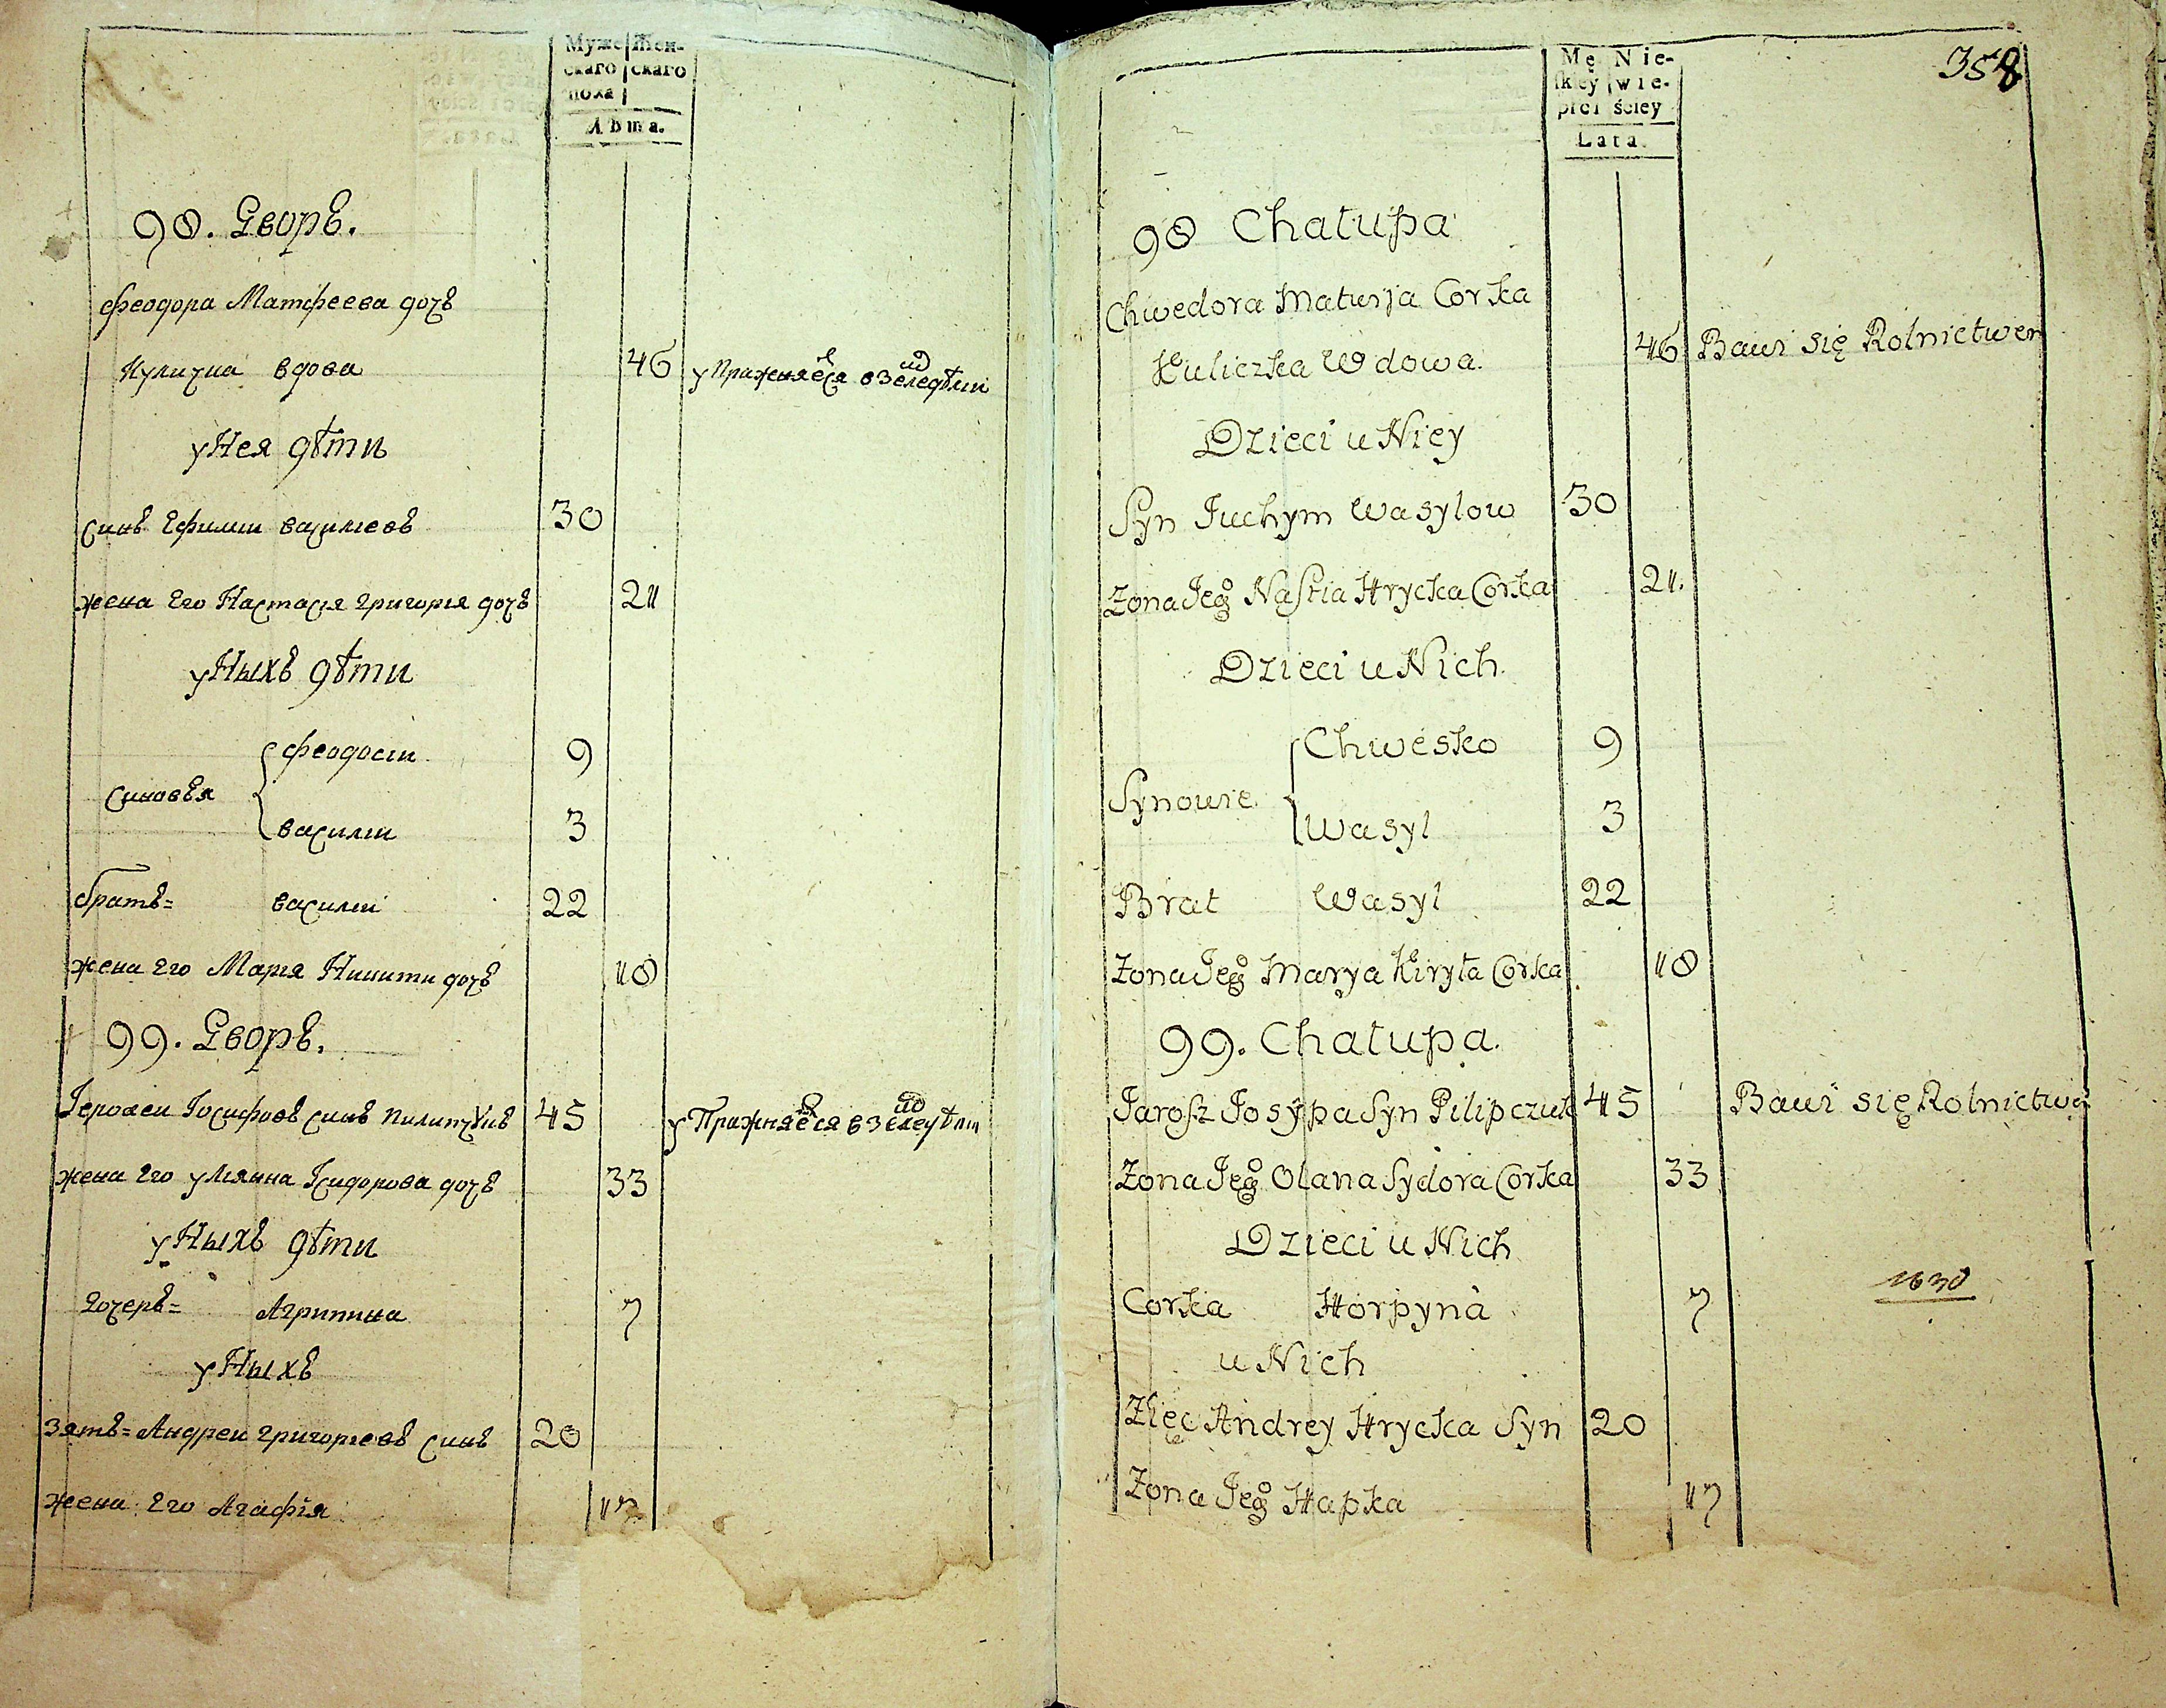 Муже Жен-
скаго скаго
пола
Лѣта.
98. Дворъ.
Феодора Матфеева дочъ
Кулична вдова 46 упражняется в земледѣлии
у Нея дѣти
Синъ Ефимии василиевъ 30
жена Его Настасія григорія дочъ 21
у Ныхъ дѣти
Синовъя
феодосіи 9
василіи 3
братъ= василіи 22
жена Его Марія Никити дочъ 18
99. Дворъ.
Іерофеи Іосифовъ синъ 45 упражняется в земледѣліи
жена Его улианна Ісидорова дочъ 33
у Ныхъ дѣти
дочеръ= Агрипина 7
у Ныхъ
зять= Андреи григориевъ синъ 20
жена Его Агафія 17
358
Mę Nie-
skiey wie-
płci ściey
Lata.
98 Chałupa
Chwedora Matwija Corka
Kuliczka Wdowa. 46 Bawi się Rolnictwem
Dzieci u Niey
Syn Juchym Wasylow 30
Zona Jego Nastia Hrycka Corka 21.
Dzieci u Nich.
Synowie
Chwesko 9
Wasyl 3
Brat Wasyl 22
Zona Jego Marya Kiryła Corka 18
99. Chałupa.
Jarosz Josypa Syn Pilipczuk 45 Bawi się Rolnictwem
Zona Jego Olana Sydora Corka 33
Dzieci u Nich
Corka Horpyna 7
1630
u Nich
Zięć Andrey Hrycka Syn 20
Zona Jego Hapka 17